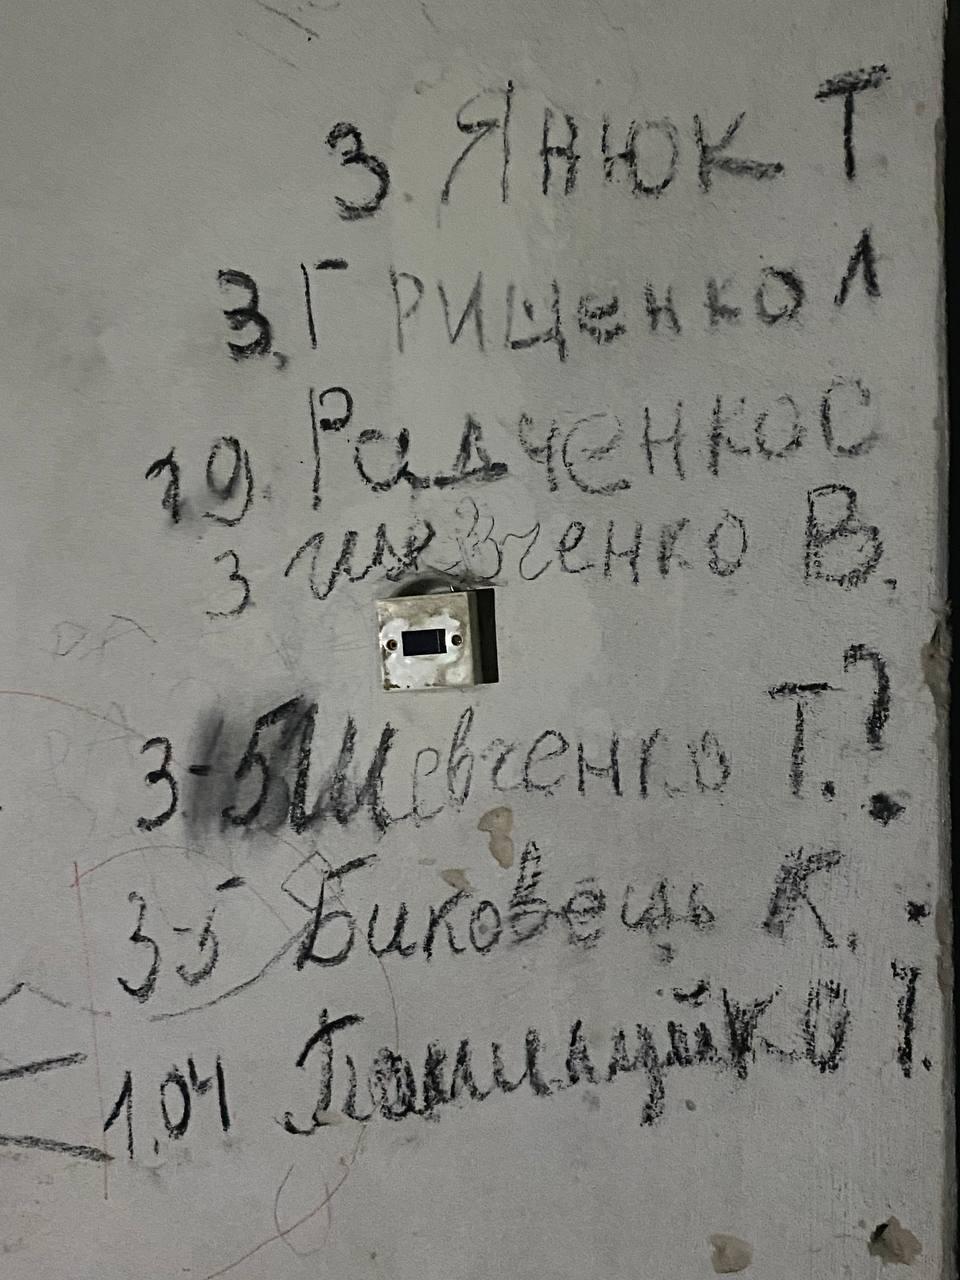 3. Янюк Т
3, Грищенко Л
19. Радченко О
3 Шевченко В.
3-5 Шевченко Т.?
3-5 Биковець К.
1.04 Помилуйко І.